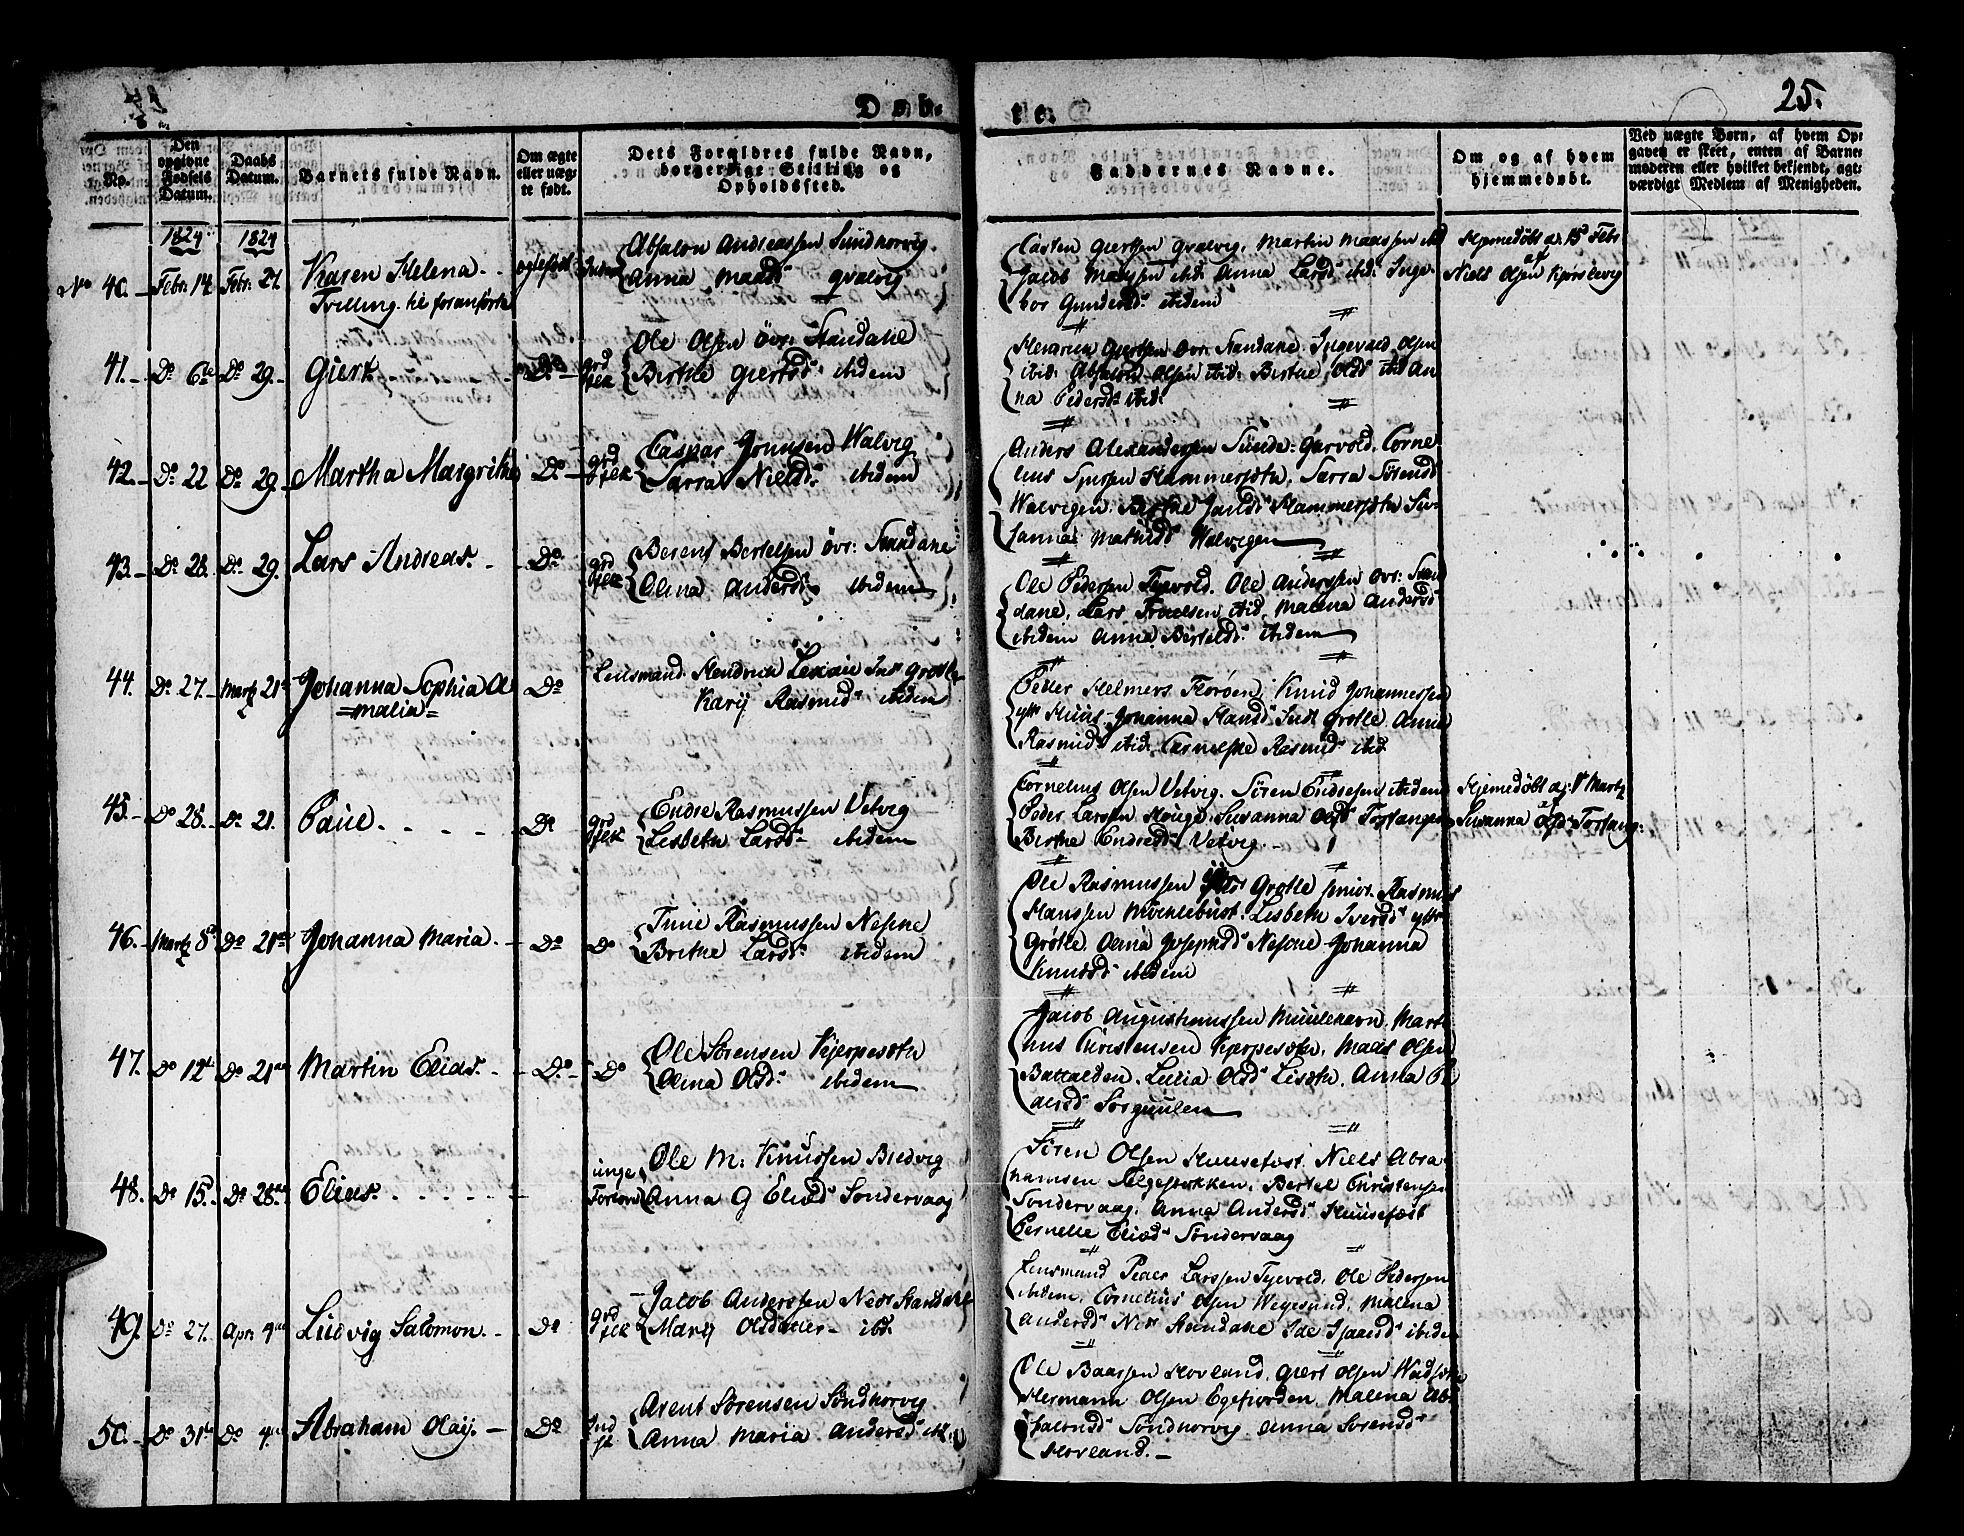 Døb- te.
25.
No.
Den opgivne Fødsels Datum.
Daabs Datum.
Barnets fulde Navn.
Om ægte eller uægte født.
Dets Forældres fulde Navn, borgerlige Stilling og Opholdssted.
Faddernes Navne.
Om og af hvem hjemmedøbt.
Ved uægte Børn, af hvem Opgaven er skeet, enten af Barnemoderen eller hvilket bekjendt, agtværdigt Medlem af Menigheden.
1824 1824
No 40. Febr: 14. Febr: 27. Karen Helena.
Tvilling
Absalon Andreassen Sundhorvig
Anna Maasd: Qvalvig
Casten Giertsen Qvalvig, Martin Maassen ibd
Jacob Maassen ibid: Anna Larsd: ibid: Inge-
bor Gundersd: ibidem
Hjemedøbt d: 15d Febr
af
Niels Olsen
41. Do 6te Do 29. Giert Do grd fek
Ole Olsen Øvr: Standahl
Birthe Giertsd: ibidem
Henrich Giertsen Øvr: Standahl. Ingevald Olsen
ibid: Absalon Olsen ibid: Birthe Olsd: ibid An
na Pedersd: ibid:
42. Do 22 Do 29. Martha Margrithe Do grd fek
Caspar Jonnsen Walvig
Sarra Nielsd: ibidem
Anders Alexandersen Sunde: Garvold. Corne
lius Hammersøth, Sarra Sørensd
Walvigen. Birthe Hammersøth Su-
sanna Mathisd: Walvigen
43. Do 28. Do 29. Lars Andreas. Do grd fek
Berent Bertelsen Øvr: Standahl
Olina Andersd: ibidem
Ole Pedersen Tyevold. Ole Andersen Øvr: Stan
dahl, Lars ibid, Malena Andersd
ibidem Anna Bertelsd: ibidem
44. Do 27. Martz 21de Johanna Sophia A
=malia= Do
Lensmand Hendrich Grotle
Karij Rasmusd: ibidem
Petter Helmers Florøen, Knud Johannessen
ytr Huus. Johanna Hansd: Indr Grotle. Anna
Rasmusd: ibid. Cornelske Rasmusd: ibid
45. Do 28. Do 21. Paul. Do grd fek
Endre Rasmussen Vetvig
Lisbeth Larsd: ibidem
Cornelius Olsen Vetvig. Sören Endresen ibidem
Peder Larsen Houge. Susanna Olsd: Torsangen
Birthe Endresd: Vetvig.
Hjemedøbt d: 1te Martz
af
Susanna Olsd: Torsang:
46. Martz 8d Do 21de Johanna Maria. Do Do
Tuue Rasmussen Nesne
Brithe Larsd: ibidem
Ole Rasmussen Grotle senior. Rasmus
Hanssen Möcklebust. Lisbeth Iversd: ytr
Grotle. Olina Josephsd: Nesne Johanna
Knudsd: ibidem
47. Do 12te Do 21de Martin Elias. Do Do
Ole Sörensen Kjerpesøth
Olina Olsd: ibidem
Jacob Augustinussen Muulehavn, Marti
nus Christensen Kjerpesøth, Maas Olsen
Battalden. Lucia Olsd: Lisøth, Anna P
edersd: Sørguulen
48. Do 15. Do 28de Elias.
unge
Ole M: Knudsen Bredvig
Anna G Eliasd: Söndervaag
Sören Olsen Huusefest. Niels Abra
hamsen Helgestokken. Bertel Christensen
Söndervaag. Anna Andersd: Huusefest
Pernelle Eliasd: Söndervaag
49. Do 27. Apr: 4de Ludvig Salomon. Do grd fek
Jacob Andersen Nedr Standahl
Marij Olsdatter ibd.
Lensmand Peder Larssen Tyevold. Ole Pedersen
ibidem. Cornelius Olsen Weyesund. Malena
Andersd: Nedr Standahl Ide Isaacsd: ibidem
50. Do 31te Do 4de Abraham Olaij. Do Ind fk
Arent Sörensen Söndhorvig
Anna Maria Andersd: ibd.
Ole Baarsen Hovland. Giert Olsen
Hermann Olsen Egefiorden, Malena Ab
salonsd: Söndhorvig Anna Sörensd:
Hovland.